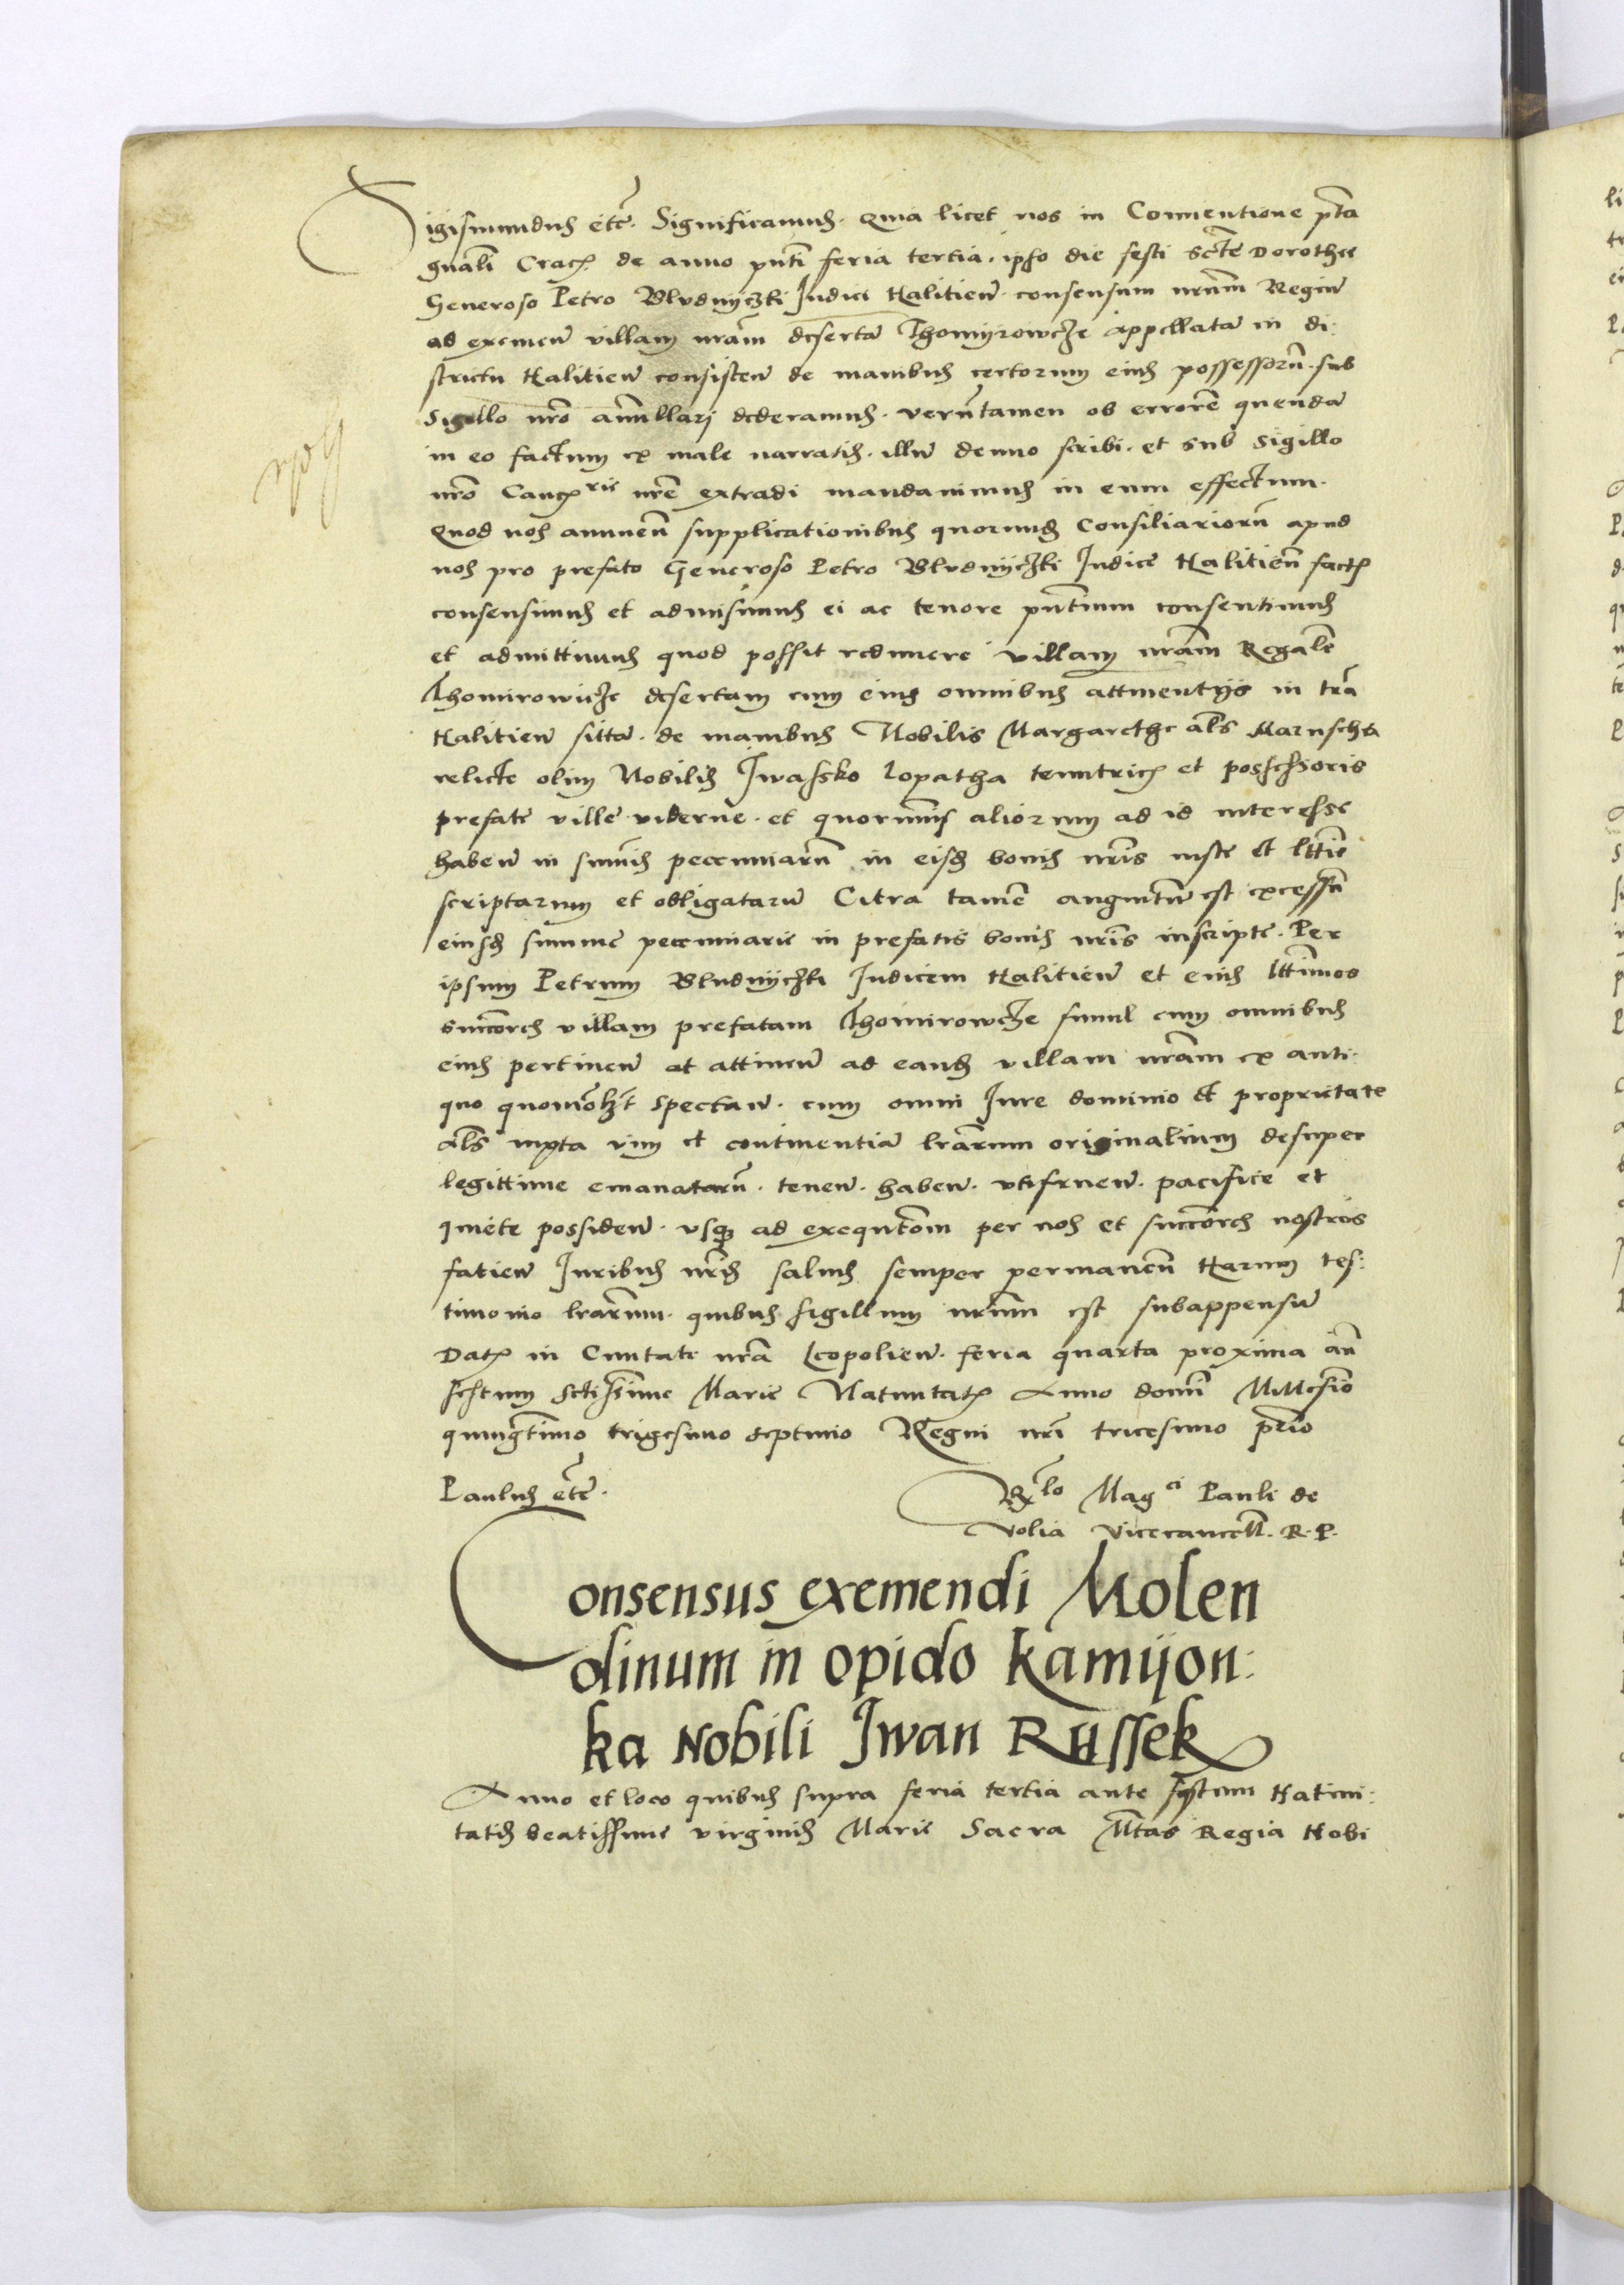 Sigismundus etc̃. Significamus. Quia licet nos in Conventione p̃ta
gnali Crac̃. de anno pn̄ti feria tertia. ipso die festi sc̄te Dorothee
Generoso Petro Bludnyczki Iudici Halicien̄. consensum nr̄um Regiu̅
ad exemen̄ villam nr̄am deserta̅ Thomyrowcze appellata̅ in di:
strictu Halitien̄ consisten̄ de manibus certorum eius possessoru̅. sub
Sigillo nr̄o anullari dederamus. veru̅tamen ob errore̅ quenda̅
in eo factum ex male narratis. illu̅ denuo scribi. et sub sigillo
nr̄o Canc̃rie nr̄e extradi mandavimus in eum effectum.
Quod nos annuen̄ supplicationibus quorund̃ Consiliarioru̅ apud
nos pro prefato Generoso Petro Bludnyczki Iudice Halitien̄ fact̃
consensimus et admisimus ei ac tenore pn̄tium consentimus
et admittimus quod possit redimere villam nr̄am Regale̅
Thomirowicze desertam cum eius omnibus attinentiis in tr̄a
Halitien̄ sitta̅. de manibus Nobilis Margarethe al̄s Maruscha
relicte olim Nobilis Iwassko Lopatha tenutric̃ et possessoris
prefate ville viderne. et quorumvis aliorum ad id interesse
haben̄ in sum̄is pecuniaru̅ in eisd̃ bonis nr̄is iuste et l̄ttie
scriptarum et obligataru̅ Citra tame̅ augmentu̅ est excessu̅
eiusd̃ summe pecuniarie in prefatis bonis nr̄is inscripte. Per
ipsum Petrum Bludnyczki Iudicem Halitien̄ et eius l̄ttimos
succ̄ores villam prefatam Thomirowcze simul cum omnibus
eius pertinen̄ at attinen̄ ad eand̃ villam nr̄am ex anti:
quo quomōlz̄t spectan̄. cum omni Iure dominio et proprietate
al̄s iuxta vim et continentia̅ lr̄arum originalium desuper
legittime emanataru̅. tenen̄. haben̄. utifruen̄. pacifice et
quiete possiden̄. usq̃ ad exequt̄om per nos et succ̄ores nostros
fatien̄ Iuribus nr̄is salvis semper permanen̄ Harum tes:
timonio lr̄arum. quibus sigillum nr̄um est subappensu̅
Dat̃ in Civitate nr̄a Leopolien̄. feria quarta proxima an̄
festum Sctissime Marie Nativitat̃ Anno domi̅ Millesi̅o
quinge̅timo trigesimo septimo Regni nr̄i tricesimo pr̄io
Paulus etc̄.
R̃lo Mag ci Pauli de
Volia Vicecancell̄. R. P.
Consensus exemendi Molen
dinum in opido Kamijon:
ka Nobili Iwan Russek
Anno et loco quibus supra feria tertia ante festum Nativi:
tatis beatissime virginis Marie Sacra M̄tas Regia Nobi